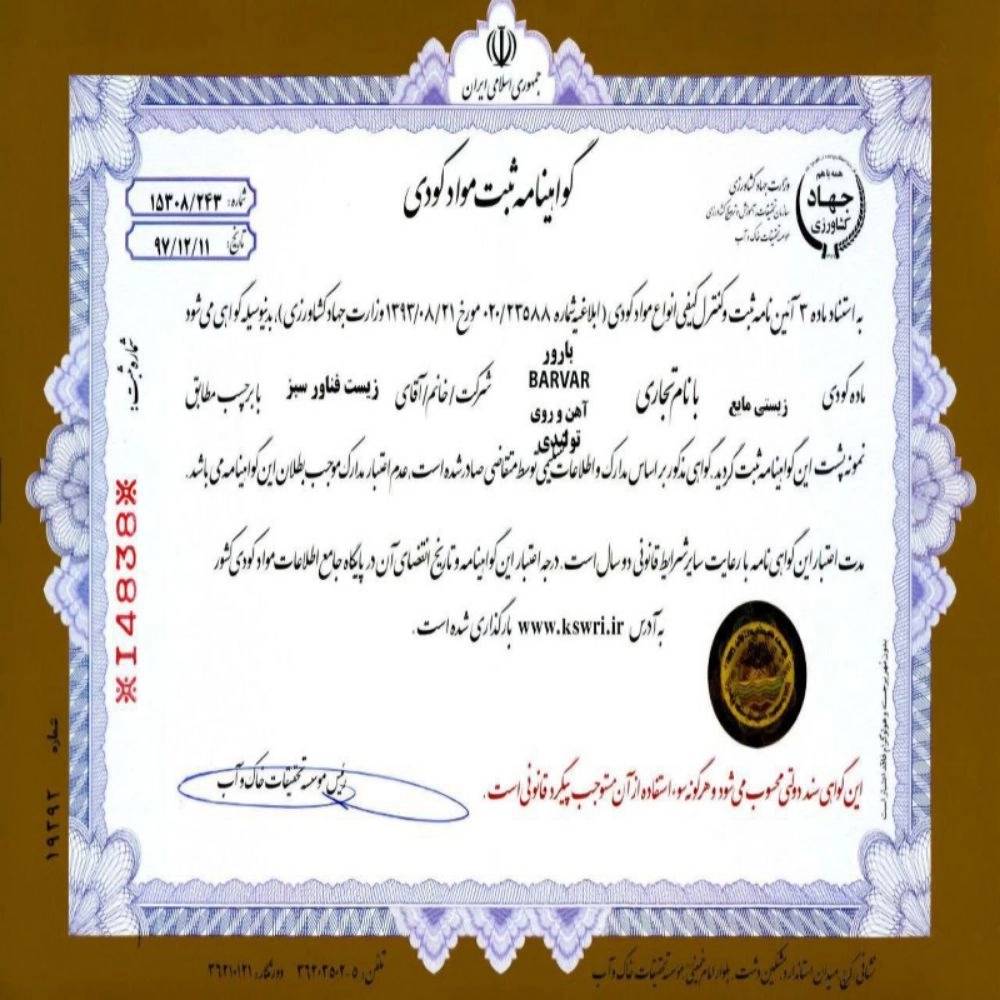 جمهوری اسلامی ایران
همه با هم
جهاد
کشاورزی
وزارت جهاد کشاورزی
سازمان تحقیقات، آموزش و ترویج کشاورزی
موسسه تحقیقات خاک و آب
گواهینامه ثبت مواد کودی
شماره: ۱۵۳۰۸/۲۴۳
تاریخ: ۹۷/۱۲/۱۱
به استناد ماده ۳ آئین نامه ثبت و کنترل کیفی انواع مواد کودی (ابلاغیه شماره ۰۲۰/۲۳۵۸۸ مورخ ۱۳۹۳/۰۸/۲۱ وزارت جهاد کشاورزی)، بدینوسیله گواهی می شود
ماده کودی زیستی مایع با نام تجاری بارور BARVAR آهن و روی تولیدی شرکت / خانم / آقای زیست فناور سبز با برچسب مطابق
نمونه پشت این گواهینامه ثبت گردید. گواهی مذکور بر اساس مدارک و اطلاعات علمی توسط متقاضی صادر شده است، عدم اعتبار مدارک موجب بطلان این گواهینامه می باشد.
مدت اعتبار این گواهی نامه با رعایت سایر شرایط قانونی دو سال است. درجه اعتبار این گواهینامه و تاریخ انقضای آن در پایگاه جامع اطلاعات مواد کودی کشور
به آدرس www.kswri.ir بارگذاری شده است.
این گواهی سند دولتی محسوب می شود و هرگونه سوء استفاده از آن مستوجب پیگرد قانونی است.
رئیس موسسه تحقیقات خاک و آب
شماره ثبت:
※114838※
شماره
۱۹۲۹۲
بدون مهر برجسته و هولوگرام فاقد اعتبار است
نشانی: کرج، میدان استاندارد، مشکین دشت، بلوار امام خمینی، موسسه تحقیقات خاک و آب
تلفن: ۵-۳۶۲۰۳۵۰۲ دورنگار: ۳۶۲۱۰۱۲۱